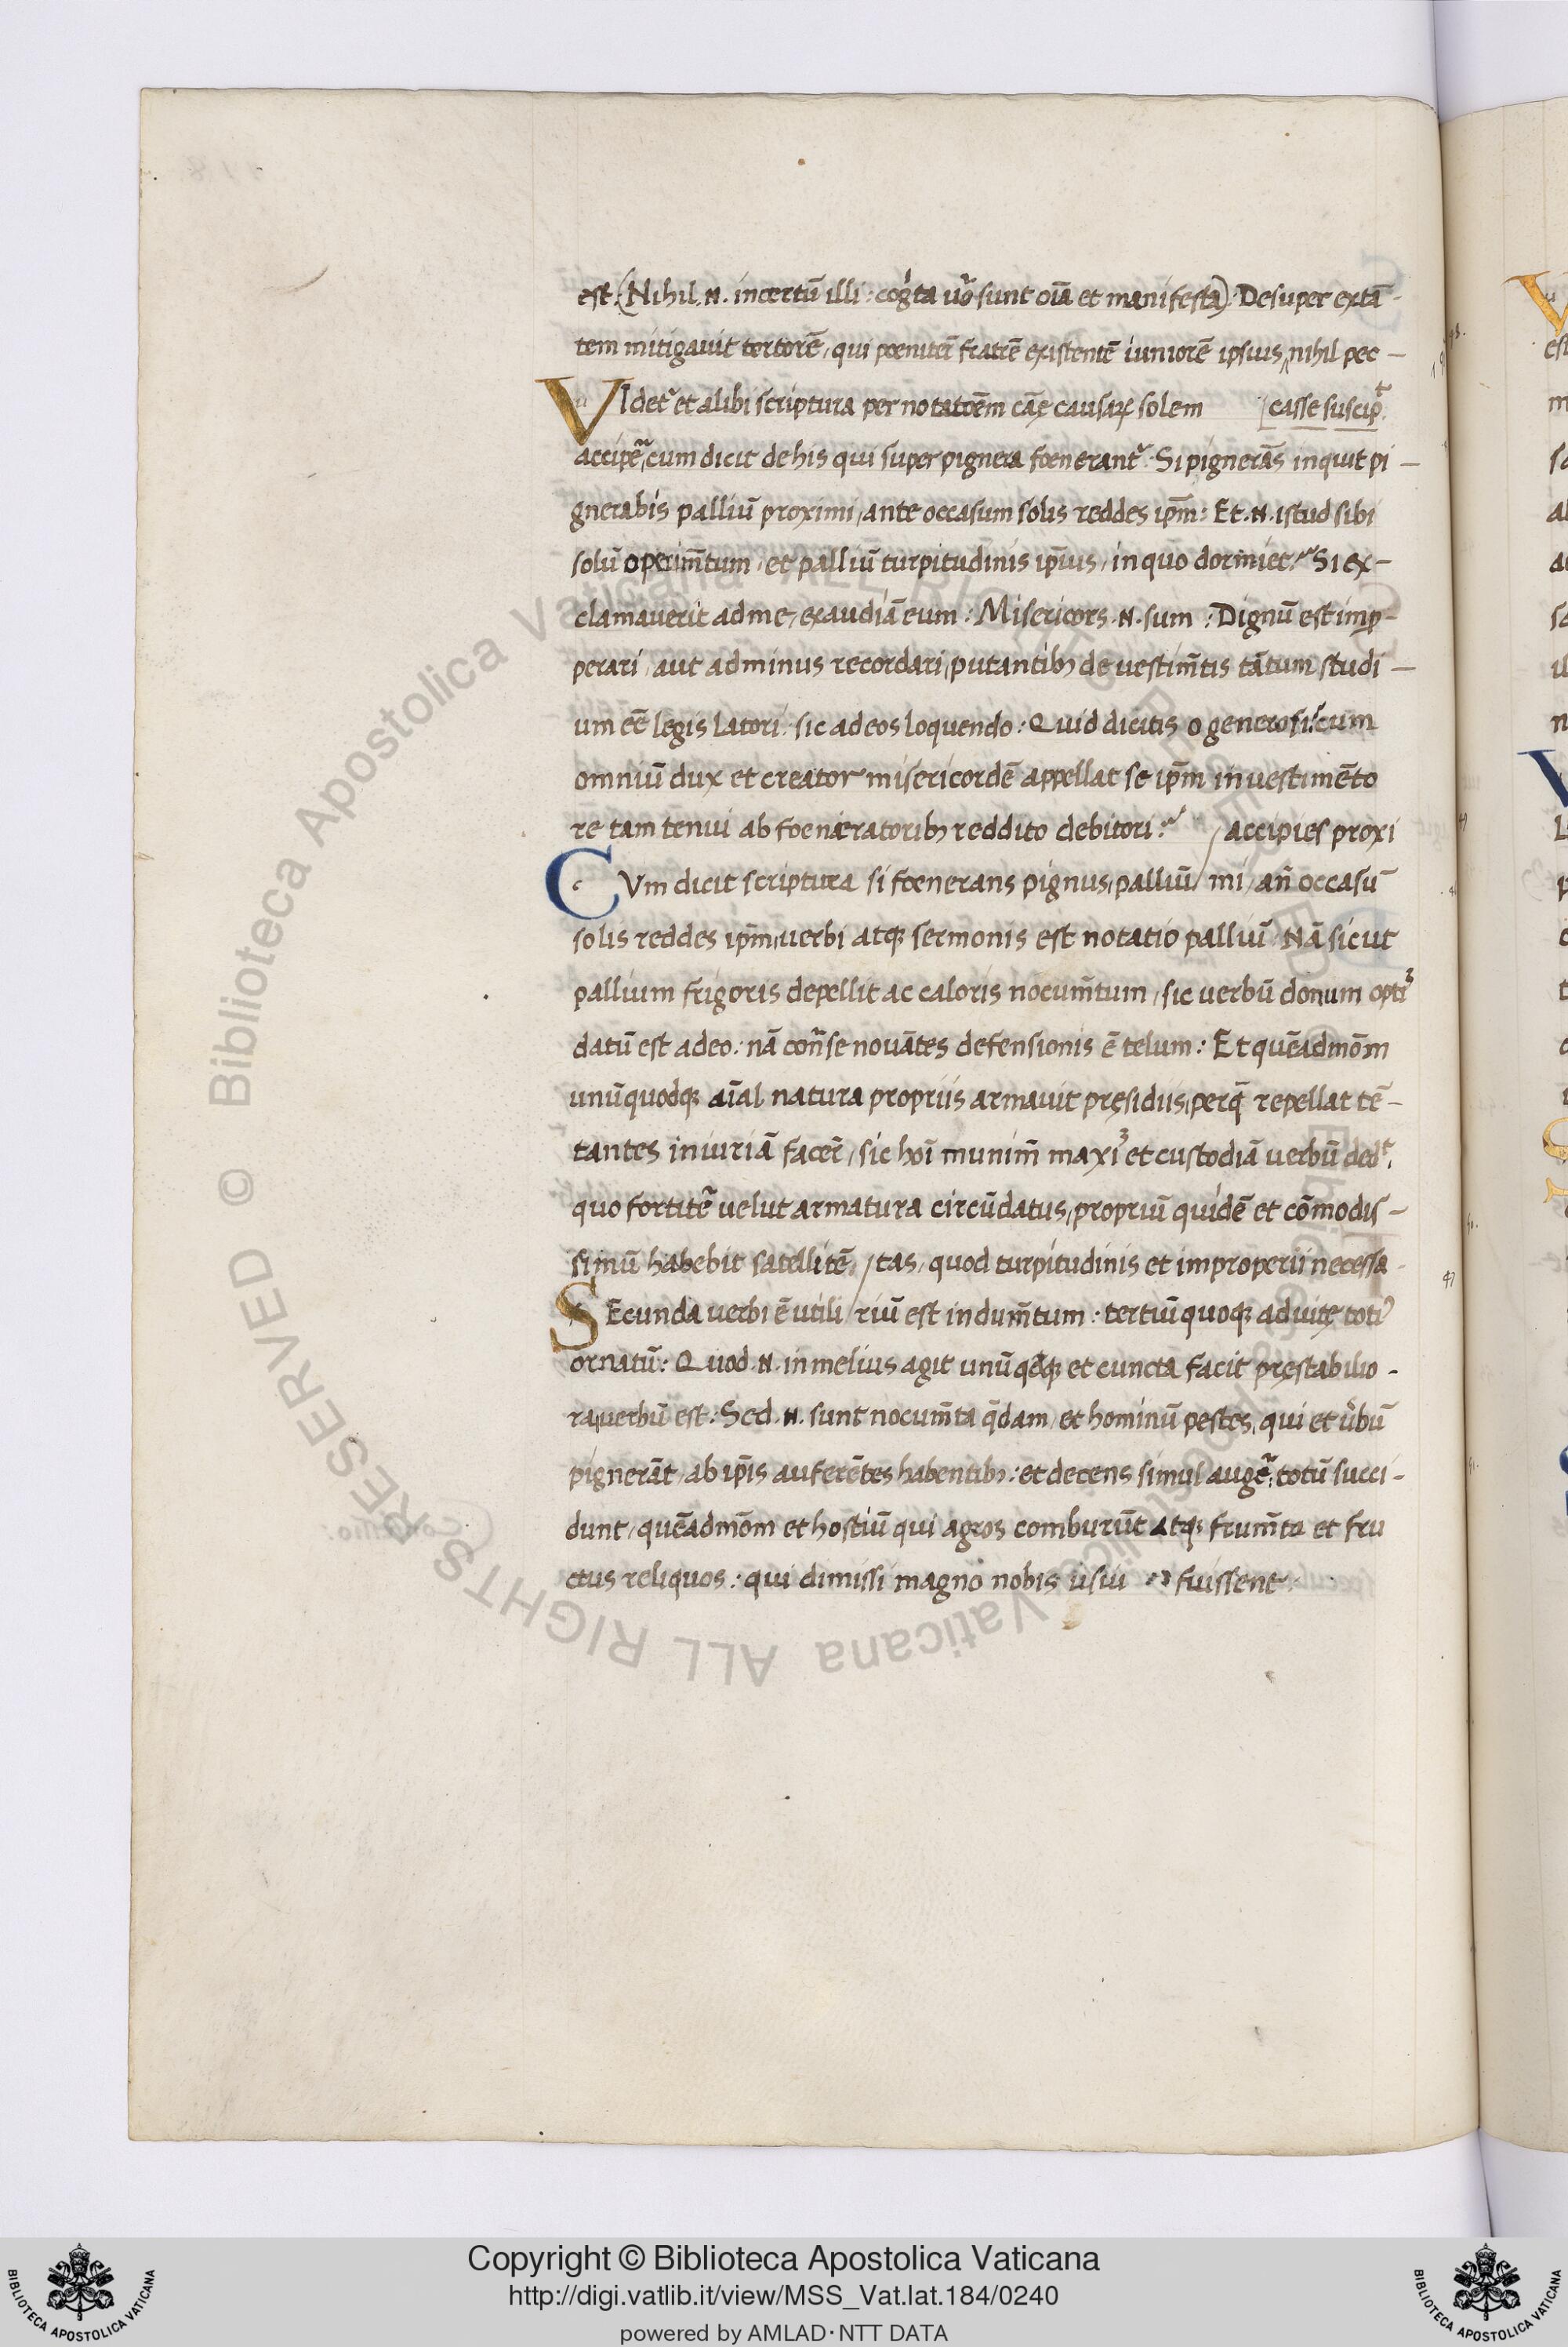 est: (Nihil .N. incertũ illi: cog̃ta ũo sunt oĩa et manifesta): Desuper extã-
tem mitigauit tortorẽ, qui pœniteñ fratrẽ existentẽ iuniorẽ ipsius, nihil pec-
VIdet᷑ et alibi scriptura per notatoẽm cãę causaꝝ solem [casse suscip̃t.
accipẽ, cum dicit de his qui super pignera fœnerant᷑: Si pignerãs inquit pi-
gnerabis palliũ proximi, ante occasum solis reddes ip̃m: Et .N. istud sibi
solũ operim̃tum, et palliũ turpitudinis ip̃ius, in quo dormiet: Si ex-
clamauerit ad me, exaudiã eum: Misericors .N. sum: Dignũ est imp-
perari, aut ad minus recordari, putantibꝫ de uestim̃tis tãtum studi-
um eẽ legis latori: sic ad eos loquendo: Quid dicitis o generosi: cum
omniũ dux et creator misericordẽ appellat se ip̃m in uestimẽto
re tam tenui ab foeneratoribꝫ reddito debitori: / accipies proxi
CVm dicit scriptura si fœnerans pignus, palliũ / mi, añ occasũ
solis reddes ip̃m, uerbi atqꝫ sermonis est notatio palliũ: Nã sicut
pallium frigoris depellit ac caloris nocum̃tum, sic uerbũ donum opti᷒
datũ est a deo: nã coñ se nouãtes defensionis ẽ telum: Et quẽadmõm
unũquodqꝫ aĩal natura propriis armauit pręsidiis, per q̃ repellat tẽ-
tantes iniuriã faceř, sic hoĩ munim̃ maxi᷒ et custodiã uerbũ ded᷑t.
quo fortitẽ uelut armatura circũdatus, propriũ quidẽ et cõmodis-
simũ habebit satellitẽ. / tas, quod turpitudinis et improperii necessa-
SEcunda uerbi ẽ utili / riũ est indum̃tum: tertiũ quoqꝫ ad uitę toti᷒
ornatũ: Quod .N. in melius agit unũqđqꝫ et cuncta facit pręstabilio-
ra, uerbũ est: Sed .N. sunt nocum̃ta q̃dam, et hominũ pestes, qui et ũbũ
pignerãt, ab ip̃is auferẽtes habentibꝫ: et decens simul augẽ, totũ succi-
dunt, quẽadmõm et hostiũ qui agros comburũt atqꝫ frum̃ta et fru
ctus reliquos: qui dimissi magno nobis usui fuissent.
Copyright © Biblioteca Apostolica Vaticana
http://digi.vatlib.it/view/MSS_Vat.lat.184/0240
powered by AMLAD·NTT DATA
BIBLIOTECA APOSTOLICA VATICANA
BIBLIOTECA APOSTOLICA VATICANA
© Biblioteca Apostolica Vaticana ALL RIGHTS RESERVED